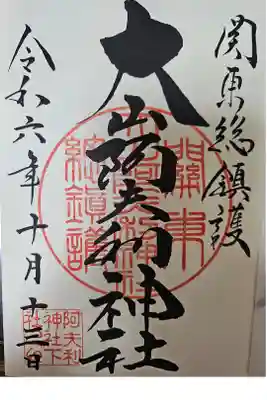 関東総鎮護
大山阿夫利神社
令和六年十月十三日
關東
總鎮護
阿夫利
神社下